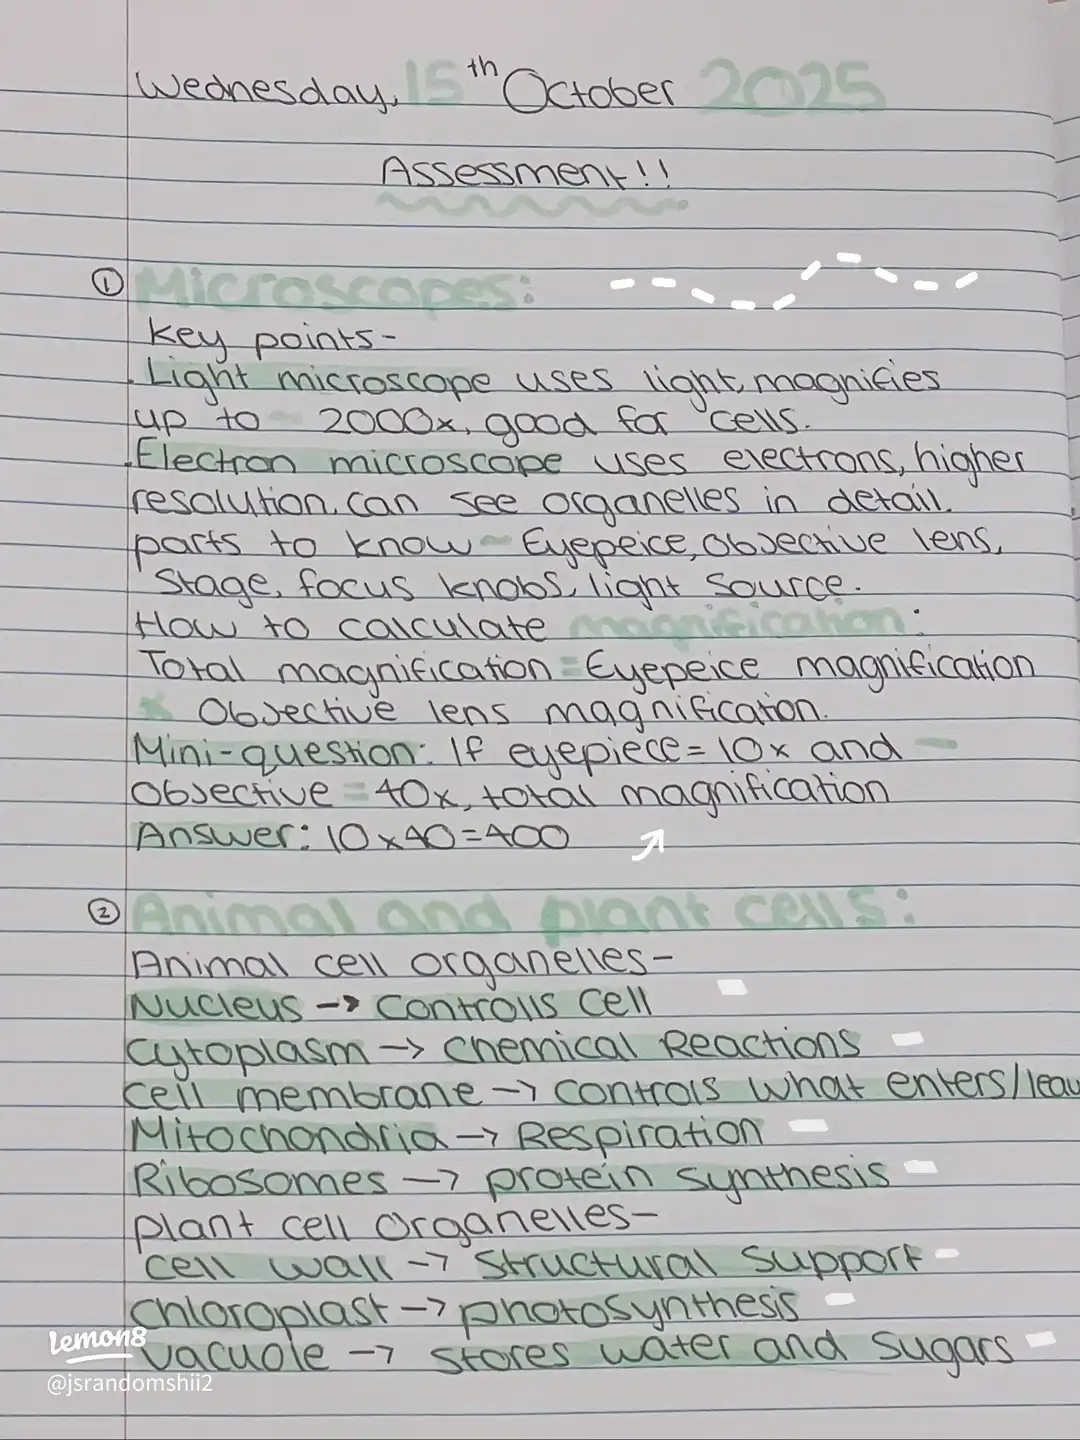 Wednesday, 15th October 2025
Assessment!!
① Microscopes:
Key points-
. Light microscope uses light, magnifies
up to 2000x, good for cells.
. Electron microscope uses electrons, higher
resolution, can see organelles in detail.
parts to know - Eyepeice, Objective lens,
Stage, focus knobs, light source.
How to calculate magnification:
Total magnification = Eyepeice magnification
x Objective lens magnification.
Mini-question: If eyepiece = 10x and
objective = 40x, total magnification
Answer: 10x40=400
② Animal and plant cells:
Animal cell organelles-
Nucleus -> Controlls Cell
Cytoplasm -> Chemical Reactions
Cell membrane -> controls what enters/leav
Mitochondria -> Respiration
Ribosomes -> protein synthesis
plant cell organelles-
cell wall -> structural support
Chloroplast -> photosynthesis
Vacuole -> stores water and sugars
lemon8
@jsrandomshii2